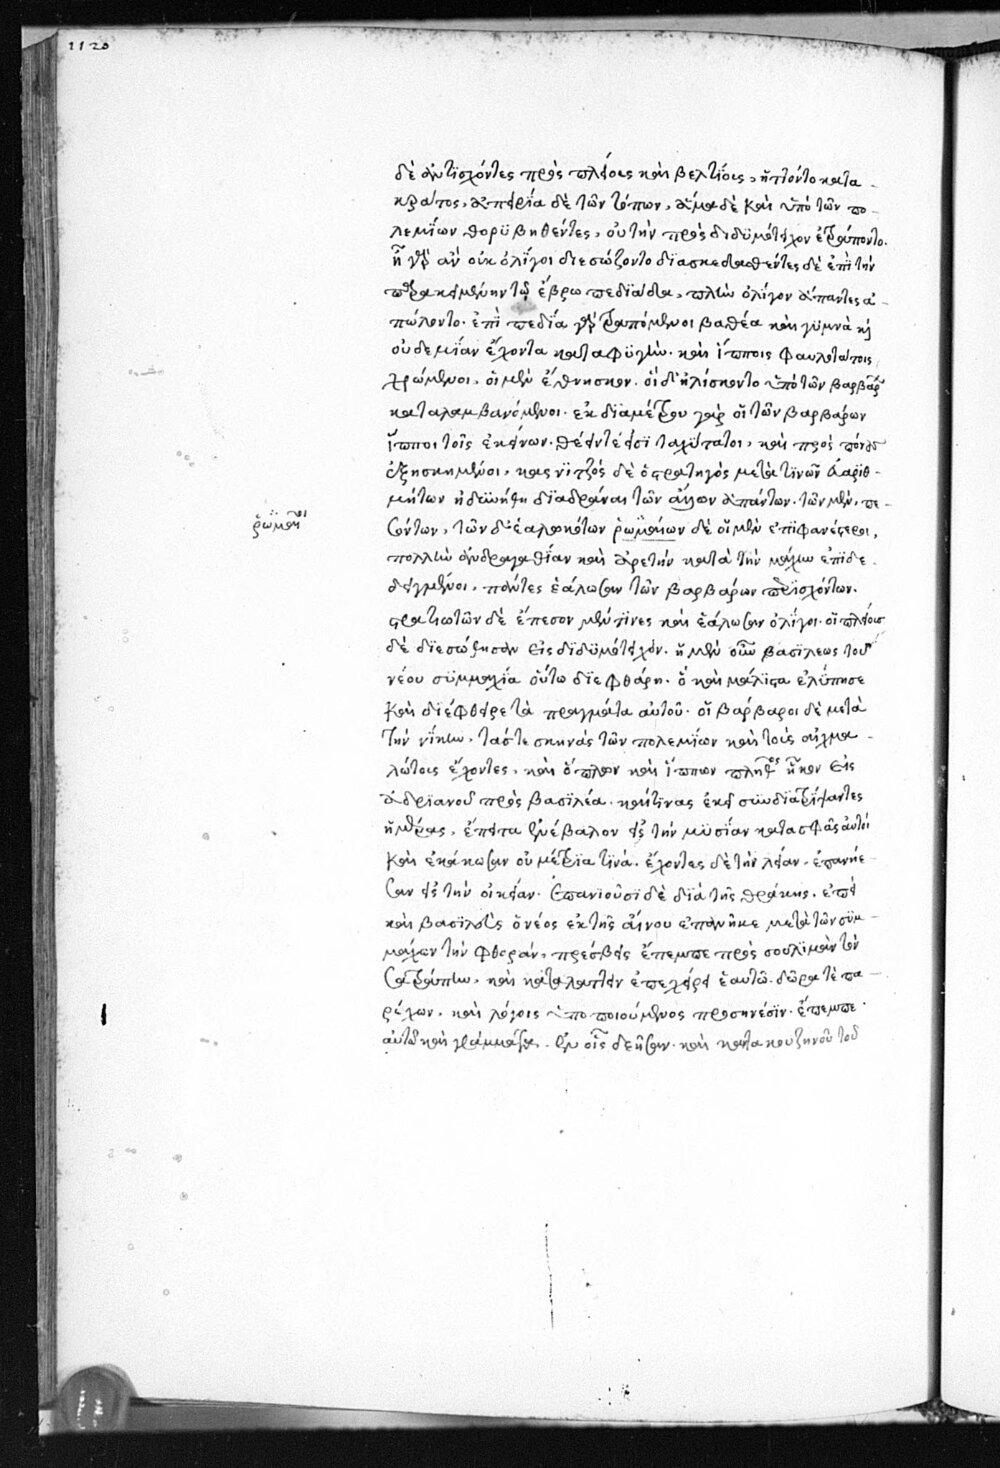 1120
δὲ ἀντισχόντες πρὸς πλείους καὶ βελτίους, ἡττῶντο κατα
κράτος, ἀπειρία δὲ τῶν τόπων, ἅμα δὲ καὶ ὑπὸ τῶν πο
λεμίων θορυβηθέντες, οὐ τὴν πρὸς διδυμότειχον ἐτράποντο.
ἢ γὰρ ἂν οὐκ ὀλίγοι διεσώζοντο διασκεδασθέντες δὲ ἐπὶ τὴν
παρακειμένην τῷ ἕβρῳ πεδιάδα, πλὴν ὀλίγων ἅπαντες ἀ
πώλοντο. ἐπὶ πεδία γὰρ τραπόμενοι βαθέα καὶ γυμνὰ κὶ
οὐδεμίαν ἔχοντα καταφυγὴν. καὶ ἵπποις φαυλοτάτοις
χρώμενοι, οἱ μὲν ἔθνησκον. οἱ δ' ἡλίσκοντο ὑπὸ τῶν βαρβάρ
καταλαμβανόμενοι. ἐκ διαμέτρου γὰρ οἱ τῶν βαρβάρων
ἵπποι τοῖς ἐκείνων. θεῖν τέ εἰσὶ ταχύτατοι, καὶ πρὸς πόνους
ἐξησκημένοι, κασνιτζὸς δὲ ὁ στρατηγὸς μετὰ τινῶν εὐαριθ
μήτων ἠδυνήθη διαδράναι τῶν ἄλλων ἁπάντων. τῶν μὲν, πε
ῥωμαῖοι
σόντων, τῶν δ' ἑαλωκότων ῥωμαίων δὲ οἱ μὲν ἐπιφανέστεροι,
πολλὴν ἀνδραγαθίαν καὶ ἀρετὴν κατὰ τὴν μάχην ἐπιδε
δειγμένοι, πάντες ἑάλωσαν τῶν βαρβάρων περισχόντων.
στρατιωτῶν δὲ ἔπεσον μέν τινες καὶ ἑάλωσαν ὀλίγοι. οἱ πλείους
δὲ διεσώθησαν εἰς διδυμότειχον. ἡ μὲν οὖν βασιλέως τοῦ
νέου συμμαχία οὕτω διεφθάρη. ὃ καὶ μάλιστα ἐλύπησε
καὶ διέφθειρε τὰ πράγματα αὐτοῦ. οἱ βάρβαροι δὲ μετὰ
τὴν νίκην. τάς τε σκηνὰς τῶν πολεμίων καὶ τοὺς αἰχμα
λώτους ἔχοντες, καὶ ὅπλων καὶ ἵππων πλῆθος ἧκον εἰς
ἀδριανοῦ πρὸς βασιλέα. καί τινας ἐκεῖ συνδιατρίψαντες
ἡμέρας, ἔπειτα ἐνέβαλον εἰς τὴν μυσίαν κατὰ σφᾶς αὐτοὺς
καὶ ἐκάκωσαν οὐ μέτρια τινά. ἔχοντες δὲ τὴν λείαν, ἐπανήε
σαν εἰς τὴν οἰκείαν. ἐπανιοῦσι δὲ διὰ τῆς θράκης, ἐπεὶ
καὶ βασιλεὺς ὁ νέος ἐκ τῆς αἴνου ἐπανῆκε μετὰ τῶν συμ
μάχων τὴν φθορὰν, πρέσβεις ἔπεμπε πρὸς σουλιμὰν τὸν
σατράπην, καὶ καταλιπεῖν ἐπεχείρει ἑαυτῷ. δῶρά τε πα
ρέχων. καὶ λόγοις ὑποποιούμενος προσηνέσιν. ἔπεμπε
αὐτῷ καὶ γράμματα. ἐν οἷς δεῆσαν. καὶ καντακουζηνοῦ τοῦ